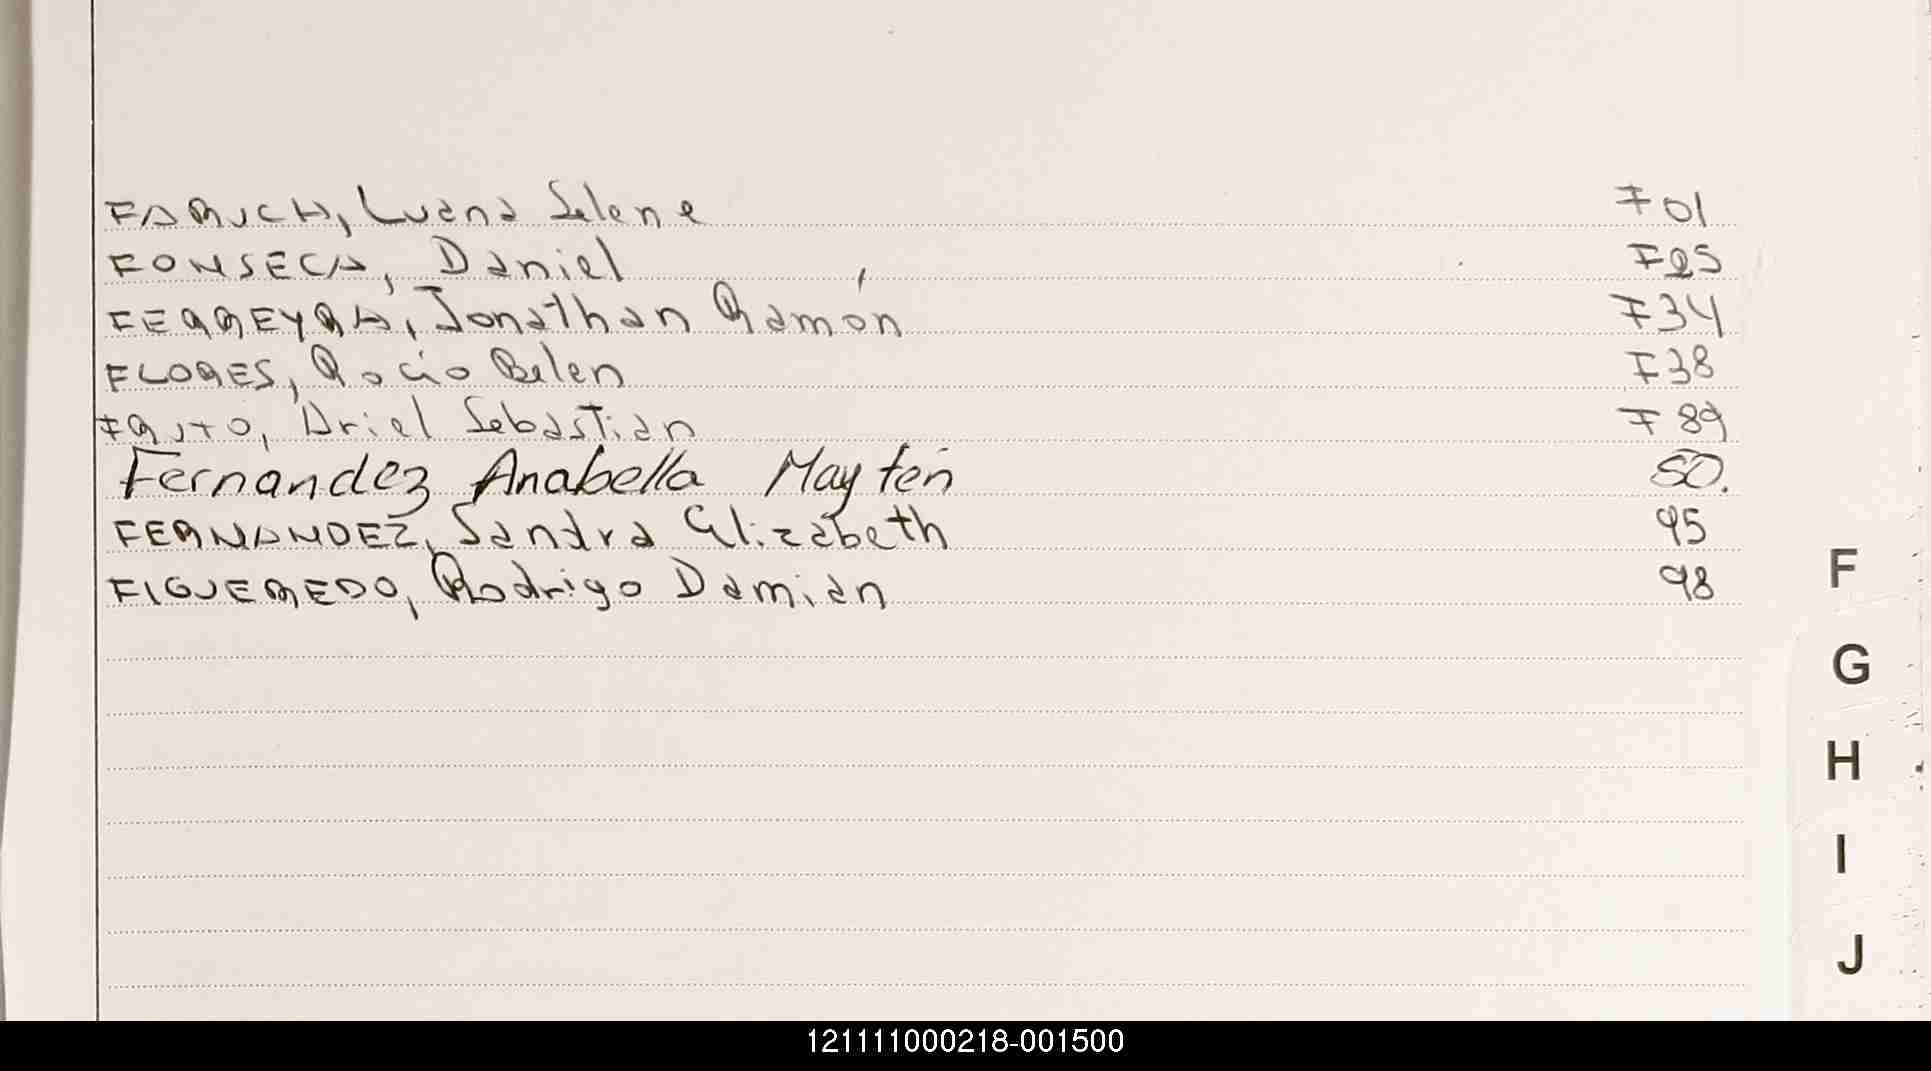 FARUCH, Luana Selene F01
FONSECA, Daniel F25
FERREYRA, Jonathan Ramón F34
FLORES, Rocío Belen F38
Ariel Sebastian F89
Fernandez Anabella Maytén 50.
FERNANDEZ, Sandra Elizabeth 95
FIGUEREDO, Rodrigo Damian 98
F
G
H
I
J
121111000218-001500